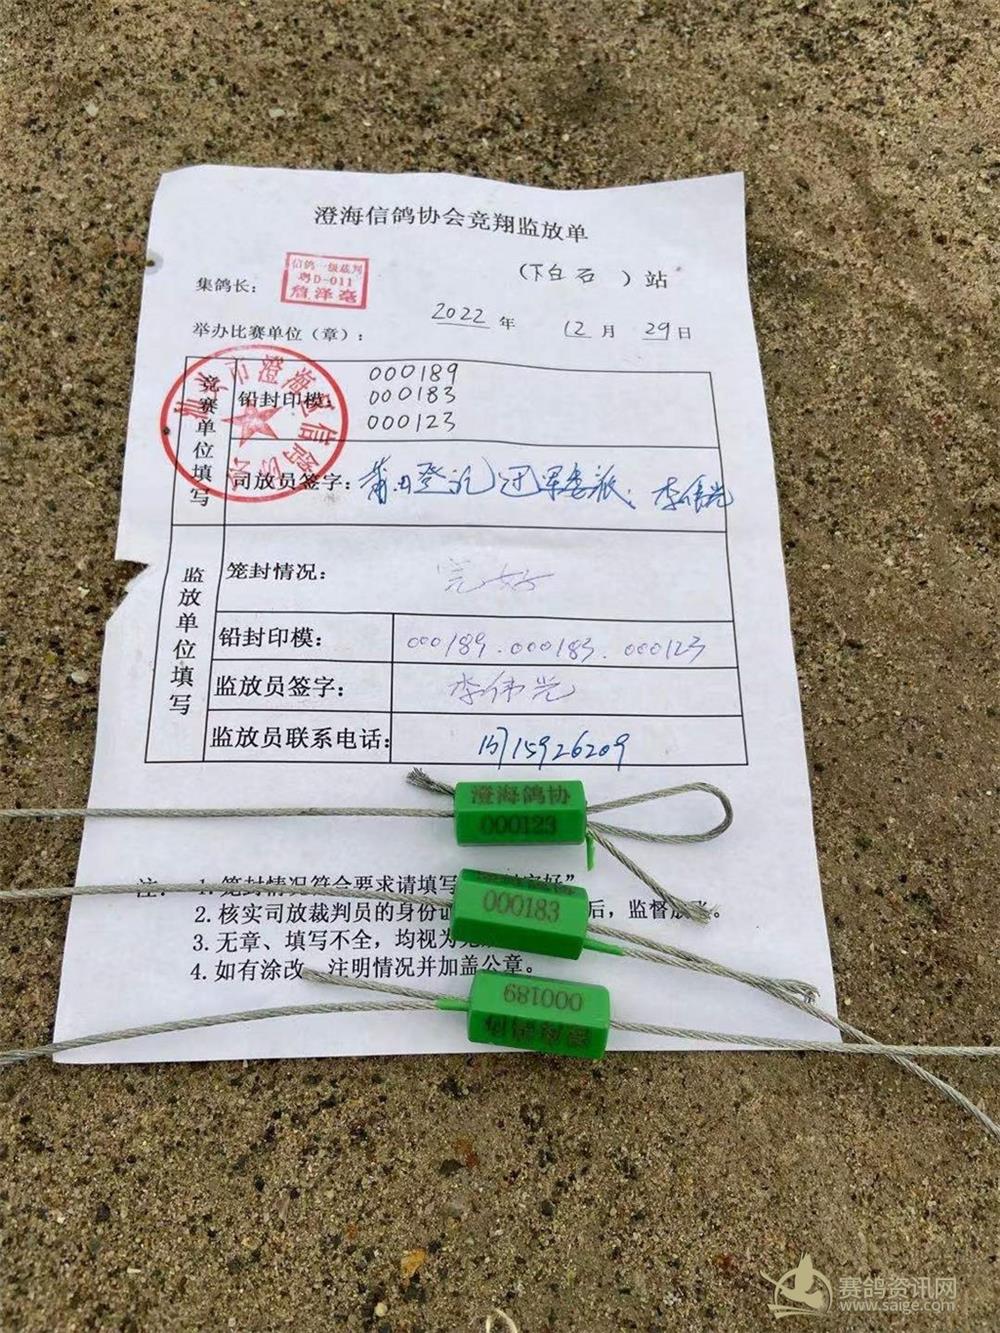 澄海信鸽协会竞翔监放单
(下白石 ) 站
集鸽长：
信鸽一级裁判
粤D-011
詹泽亳
2022 年 12 月 29 日
举办比赛单位（章）：
市澄海区信鸽协会
竞赛单位填写
铅封印模：
000189
000183
000123
司放员签字：
李伟光
监放单位填写
笼封情况： 完好
铅封印模： 000189.000183.000123
监放员签字： 李伟光
监放员联系电话： 13715926209
澄海鸽协
000123
注： 1.笼封情况符合要求请填写 完好"
000183
2.核实司放裁判员的身份证 后，监督放飞。
3.无章、填写不全，均视为无
4.如有涂改 注明情况并加盖公章。
000189
澄海鸽协
赛鸽资讯网
www.saige.com